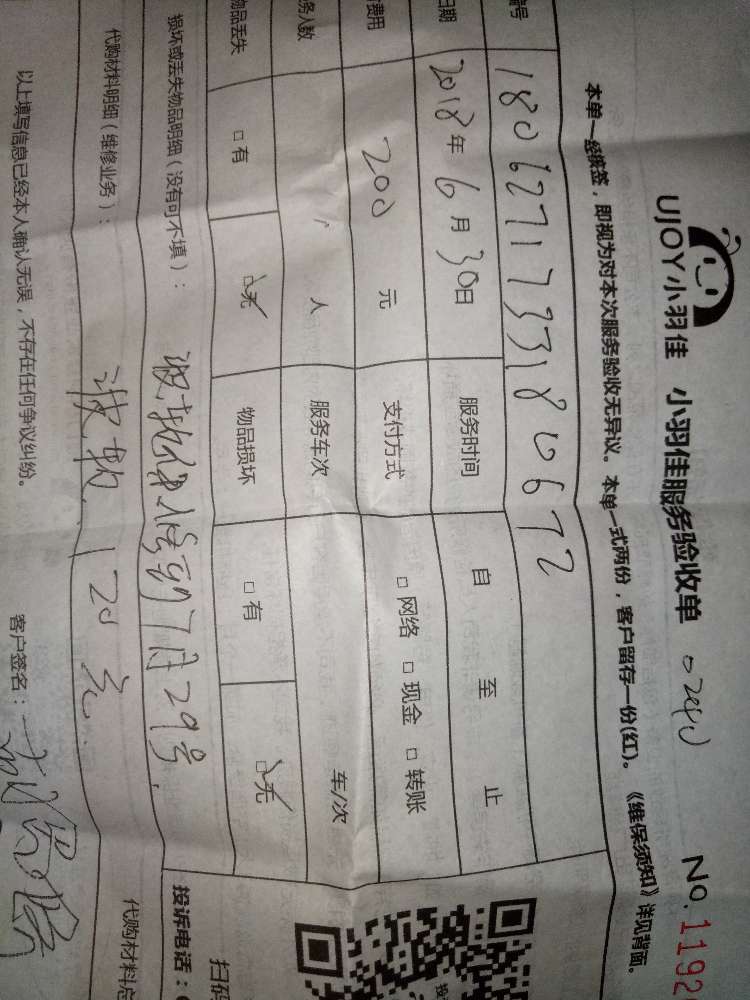 UJOY小羽佳 小羽佳服务验收单 0240 No.1192
本单一经签签，即视为对本次服务验收无异议。本单一式两份，客户留存一份(红)。《维保须知》详见背面。
编号 1806271733180672
日期 2018年6月30日 服务时间 自 至 止
费用 200 元 支付方式 □网络 □现金 □转账
务人数 人 服务车次 车/次
物品丢失 □有 □无 物品损坏 □有 □无
损坏或丢失物品明细（没有可不填）： 7月29号
代购材料明细（维修业务）： 120元
代购材料总
以上填写信息已经本人确认无误，不存在任何争议纠纷。
客户签名：
扫码
投诉电话：